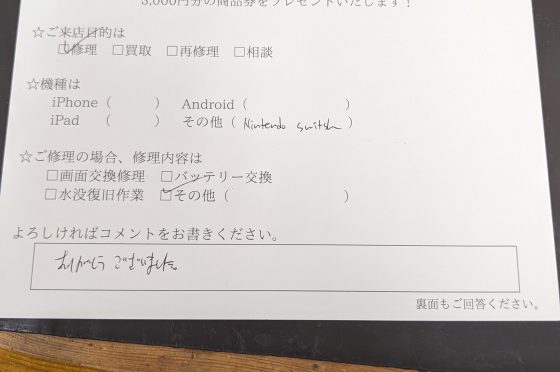 3,000円分の商品券をプレゼントいたします！
☆ご来店目的は
☑修理 □買取 □再修理 □相談
☆機種は
iPhone（ ） Android（ ）
iPad （ ） その他（ Nintendo switch ）
☆ご修理の場合、修理内容は
□画面交換修理 □バッテリー交換
□水没復旧作業 ☑その他（ ）
よろしければコメントをお書きください。
ありがとうございました。
裏面もご回答ください。